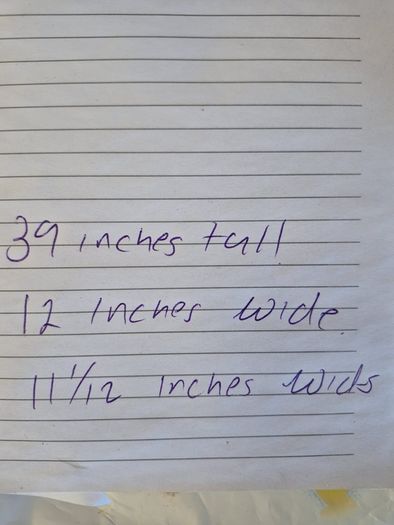 39 inches tall
12 inches wide
11 1/12 inches wids